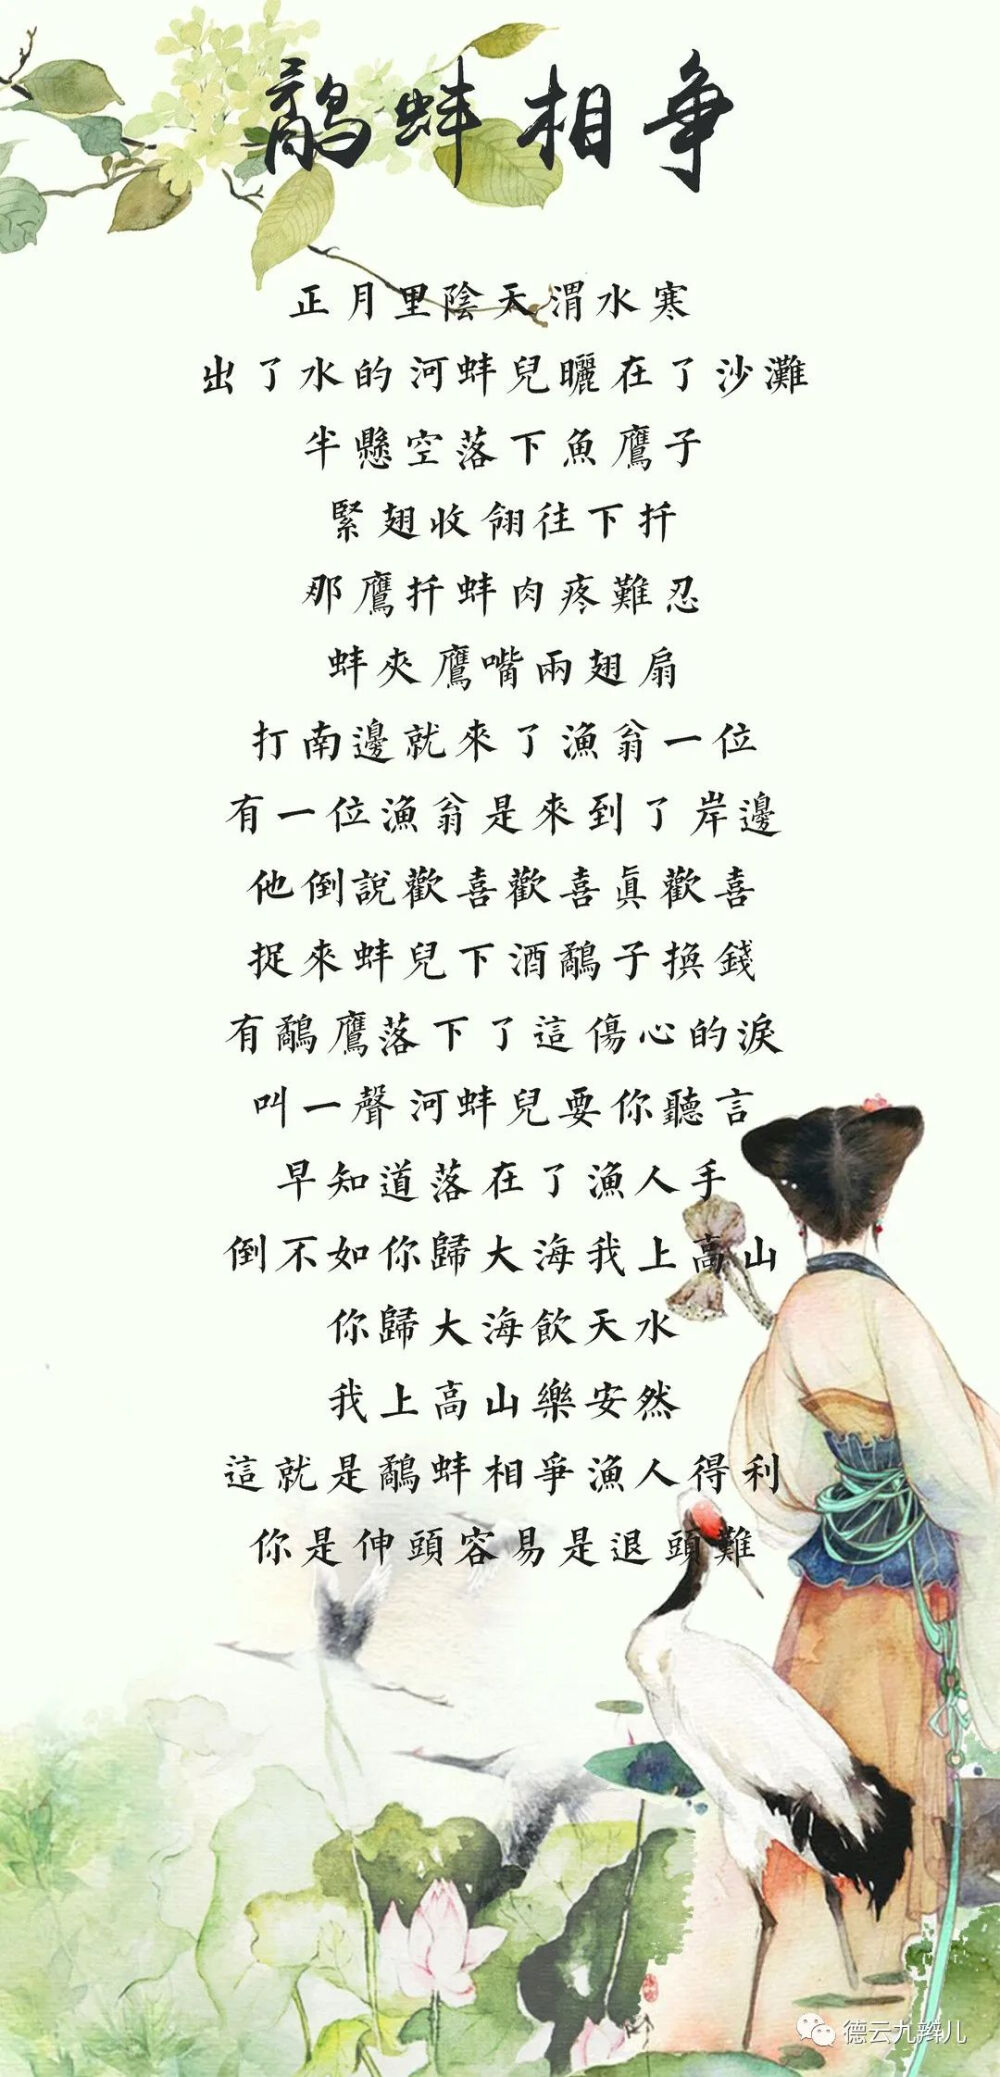 鷸蚌相爭
正月里陰天渭水寒
出了水的河蚌兒曬在了沙灘
半懸空落下魚鷹子
緊翅收翎往下扦
那鷹扦蚌肉疼難忍
蚌夾鷹嘴兩翅扇
打南邊就來了漁翁一位
有一位漁翁是來到了岸邊
他倒說歡喜歡喜眞歡喜
捉來蚌兒下酒鷸子換錢
有鷸鷹落下了這傷心的淚
叫一聲河蚌兒要你聽言
早知道落在了漁人手
倒不如你歸大海我上高山
你歸大海飲天水
我上高山樂安然
這就是鷸蚌相爭漁人得利
你是伸頭容易是退頭難
德云九辫儿